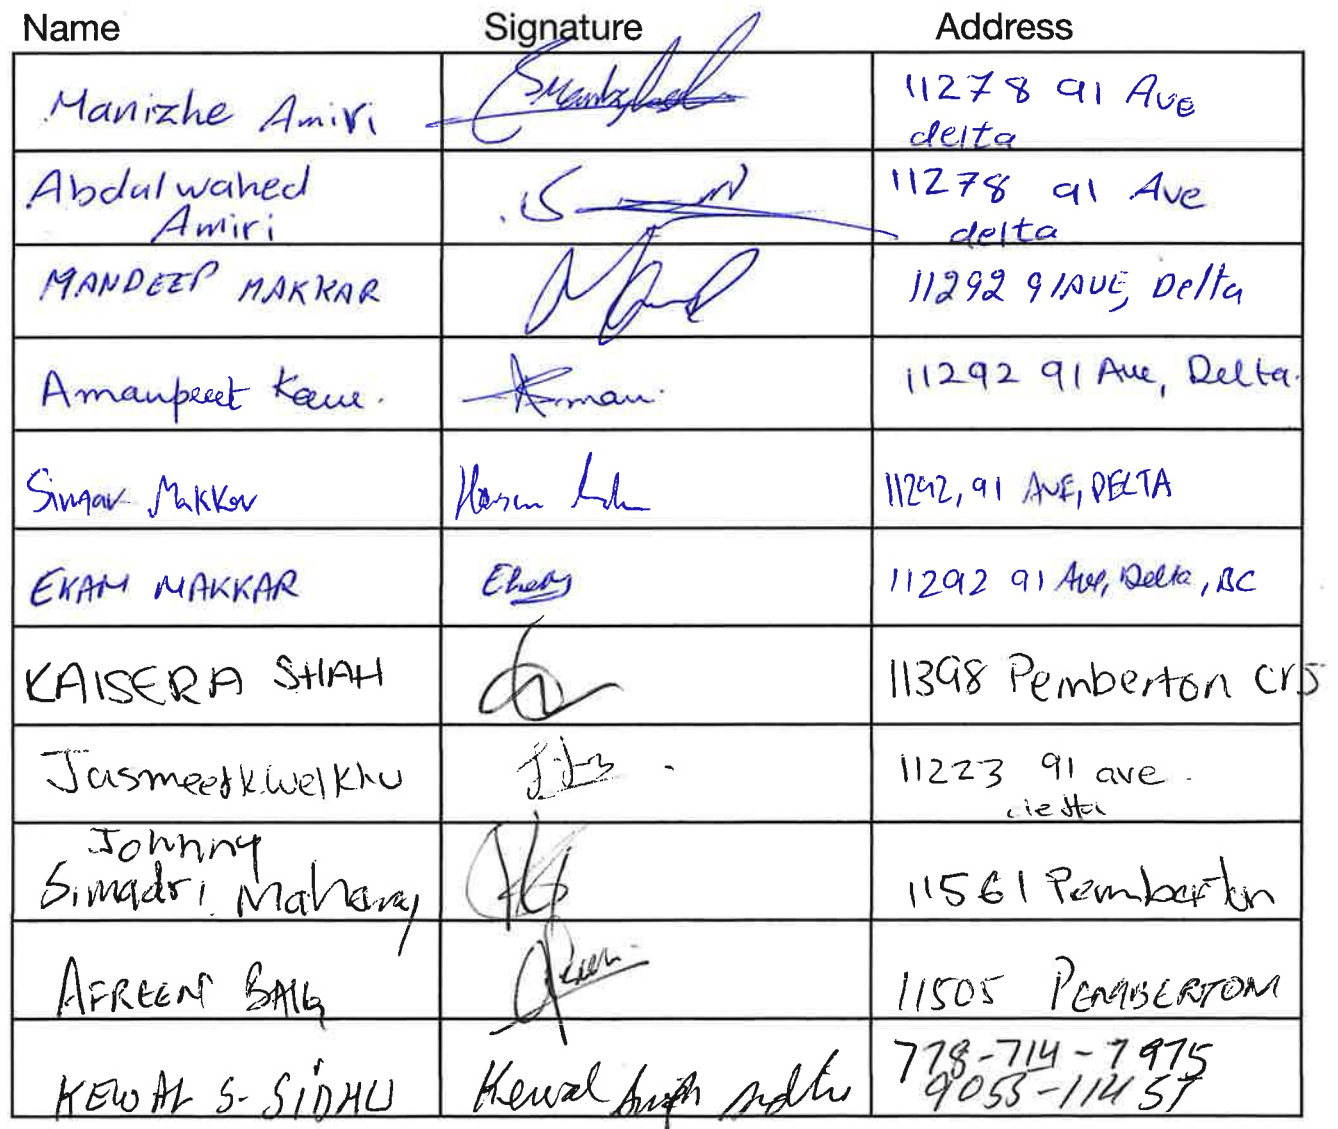 Name Signature Address
Manizhe Amiri 11278 91 Ave
delta
Abdulwahed 11278 91 Ave
Amiri delta
MANDEEP MAKKAR 11292 91 AVE, Delta
Amanpreet Kaur. Aman. 11292 91 Ave, Delta.
Simar Makkar 11292, 91 AVE, DELTA
EKAM MAKKAR 11292 91 Ave, Delta, BC
KAISERA SHAH 11398 Pemberton Crs
Jasmeet 11223 91 ave.
delta
Johnny
Simadri Maharaj 11561 Pemberton
AFREEN BAIG 11505 PEMBERTON
KEWAL S. SIDHU Kewal Singh Sidhu 778-714-7975
9053-114 ST